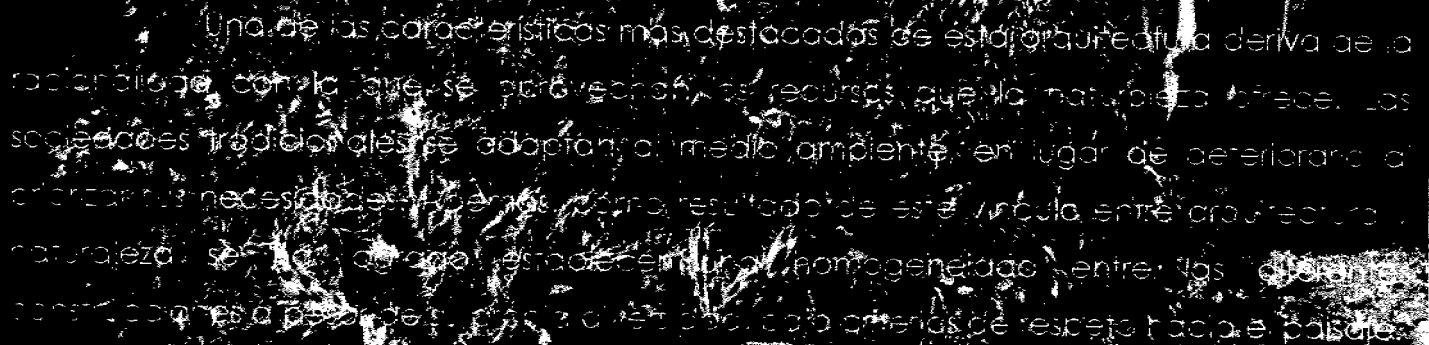 Una de las características más destacadas de esta arquitectura deriva de la
racionalidad con la que se aprovechan los recursos que la naturaleza ofrece. Las
sociedades tradicionales se adaptan al medio ambiente, en lugar de deteriorarlo al
priorizar sus necesidades. Además, como resultado de este vínculo entre arquitectura y
naturaleza, se ha logrado establecer una homogeneidad entre las diferentes
construcciones a pesar de su bajo criterios de respeto hacia el paisaje.